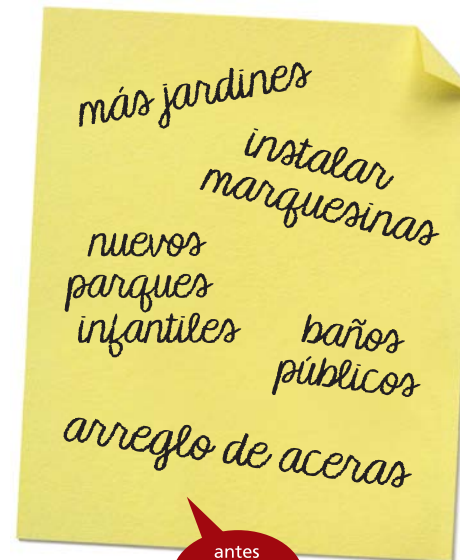 más jardines
instalar
marquesinas
nuevos
parques
infantiles
baños
públicos
arreglo de aceras
antes